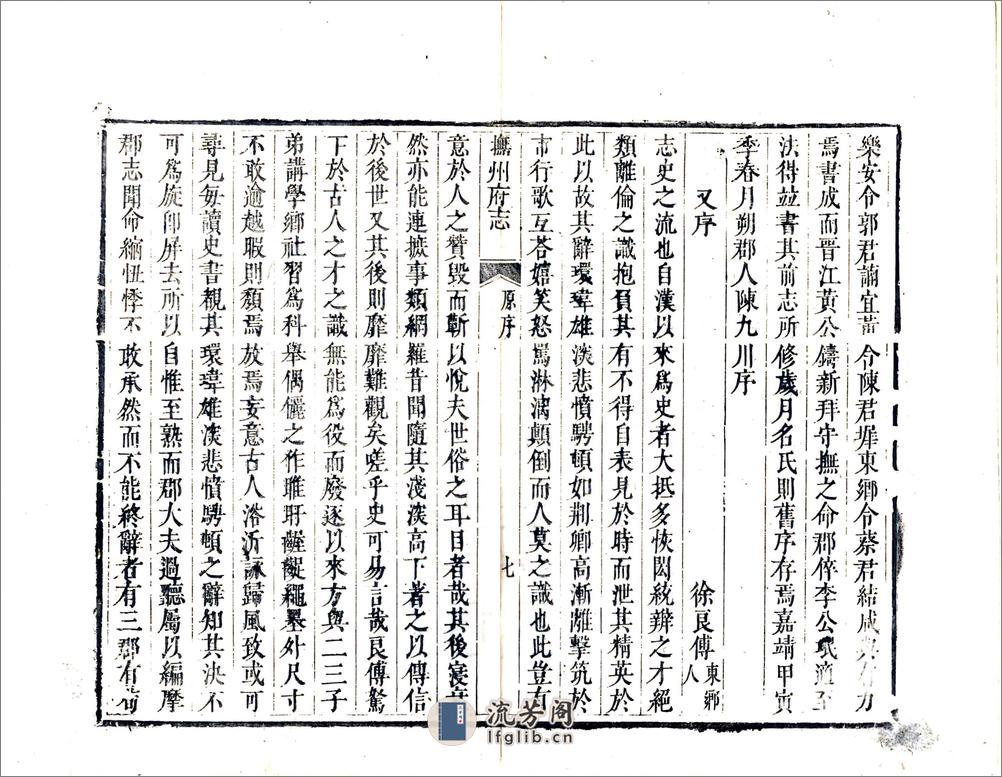 樂安令郭君諭宜黃令陳君墀東鄉令蔡君結咸與有力
焉書成而晉江黃公鑄新拜守撫之命郡倅李公珉適至
法得竝書其前志所修歲月名氏則舊序存焉嘉靖甲寅
季春月朔郡人陳九川序
又序
徐良傅東鄉人
志史之流也自漢以來爲史者大抵多恢閎統辯之才絕
類離倫之識抱負其有不得自表見於時而泄其精英於
此以故其辭環瑋雄淡悲憤騁頓如荆卿高漸離擊筑於
市行歌互答嬉笑怒罵淋漓顛倒而人莫之識也此豈有
撫州府志
原序
七
意於人之贊毀而蘄以悅夫世俗之耳目者哉其後寖
然亦能連摭事類網羅昔聞隨其淺淡高下著之以傳信
於後世又其後則靡靡難觀矣嗟乎史可易言哉良傅駑
下於古人之才之識無能爲役而廢逐以來方與二三子
弟講學鄉社習爲科舉偶儷之作睢盱齷齪繩墨外尺寸
不敢逾越暇則頽焉放焉妄意古人浴沂詠歸風致或可
尋見每讀史書親其環瑋雄淡悲憤騁頓之辭知其決不
可爲旋卽屏去所以自惟至熟而郡大夫過聽屬以編摩
郡志聞命緬忸悸不敢承然而不能終辭者有三郡有
流芳阁
lfglib.cn